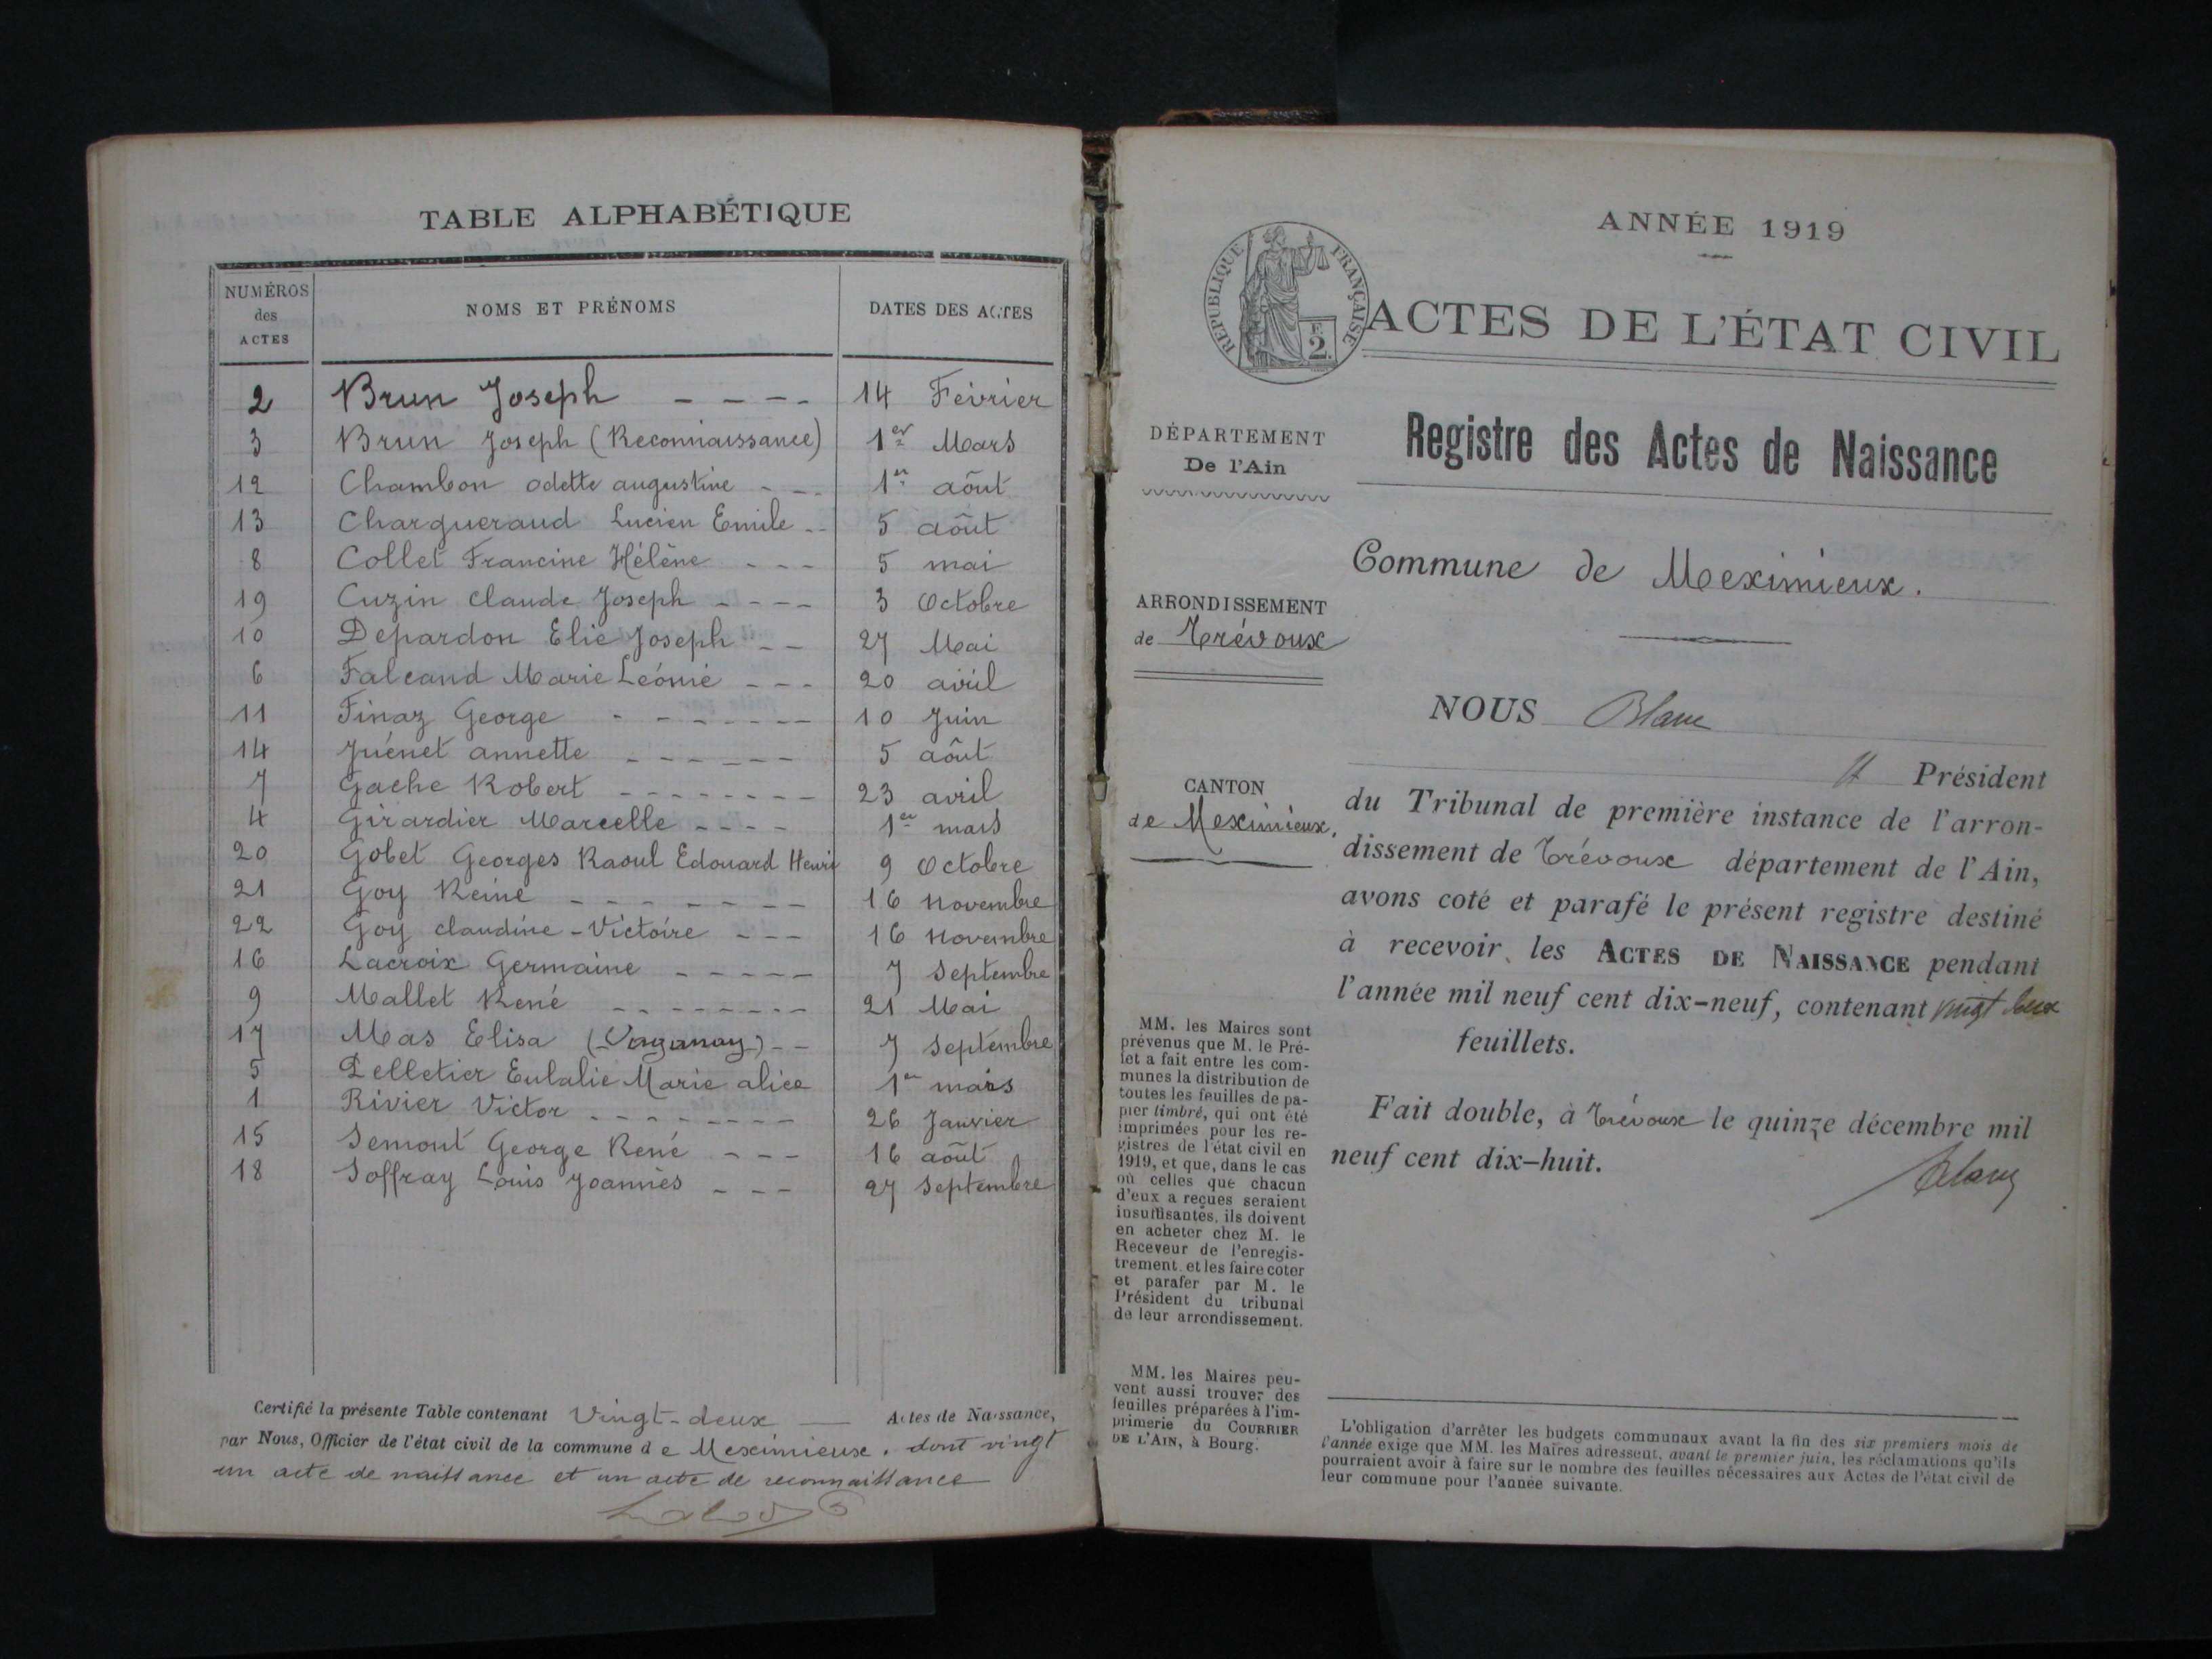 TABLE ALPHABÉTIQUE
NUMÉROS des ACTES NOMS ET PRÉNOMS DATES DES ACTES
2 Brun Joseph - - - - 14 Février
3 Brun Joseph (Reconnaissance) 1er Mars
12 Chambon odette augustine - - 1er août
13 Chargueraud Lucien Emile - - 5 août
8 Collet Francine Hélène - - - 5 mai
19 Cuzin claude Joseph - - - - 3 Octobre
10 Depardon Elie Joseph - - 27 Mai
6 Falcand Marie Léonie - - - 20 avril
11 Finaz George - - - - - - - 10 Juin
14 Juénet annette - - - - - - 5 août
7 Gache Robert - - - - - - - - 23 avril
4 Girardier Marcelle - - - - 1er mars
20 Gobet Georges Raoul Edouard Henri 9 Octobre
21 Goy Reine - - - - - - - 16 novembre
22 Goy claudine - Victoire - - - 16 novembre
16 Lacroix Germaine - - - - - 7 Septembre
9 Mallet René - - - - - - - - 21 Mai
17 Mas Elisa (Vaganay) - - 7 Septembre
5 Pelletier Eulalie Marie alice 1er mars
1 Rivier Victor - - - - - - - 26 Janvier
15 Semont George René - - - 16 août
18 Soffray Louis Joannès - - - 27 Septembre
Certifié la présente Table contenant Vingt-deux — Actes de Naissance,
par Nous, Officier de l'état civil de la commune de Meximieux, dont vingt
un acte de naissance et un acte de reconnaissance
ANNÉE 1919
RÉPUBLIQUE FRANÇAISE
2
ACTES DE L'ÉTAT CIVIL
Registre des Actes de Naissance
DÉPARTEMENT
De l'Ain
Commune de Meximieux.
ARRONDISSEMENT
de Trévoux
NOUS Blanc
Président
du Tribunal de première instance de l'arron-
dissement de Trévoux département de l'Ain,
avons coté et parafé le présent registre destiné
à recevoir les ACTES DE NAISSANCE pendant
l'année mil neuf cent dix-neuf, contenant vingt deux
feuillets.
Fait double, à Trévoux le quinze décembre mil
neuf cent dix-huit.
Blanc
CANTON
de Meximieux,
MM. les Maires sont
prévenus que M. le Pré-
fet a fait entre les com-
munes la distribution de
toutes les feuilles de pa-
pier timbré, qui ont été
imprimées pour les re-
gistres de l'état civil en
1919, et que, dans le cas
où celles que chacun
d'eux a reçues seraient
insuffisantes, ils doivent
en acheter chez M. le
Receveur de l'enregis-
trement et les faire coter
et parafer par M. le
Président du tribunal
de leur arrondissement.
MM. les Maires peu-
vent aussi trouver des
feuilles préparées à l'im-
primerie du COURRIER
DE L'AIN, à Bourg.
L'obligation d'arrêter les budgets communaux avant la fin des six premiers mois de
l'année exige que MM. les Maires adressent, avant le premier juin, les réclamations qu'ils
pourraient avoir à faire sur le nombre des feuilles nécessaires aux Actes de l'état civil de
leur commune pour l'année suivante.